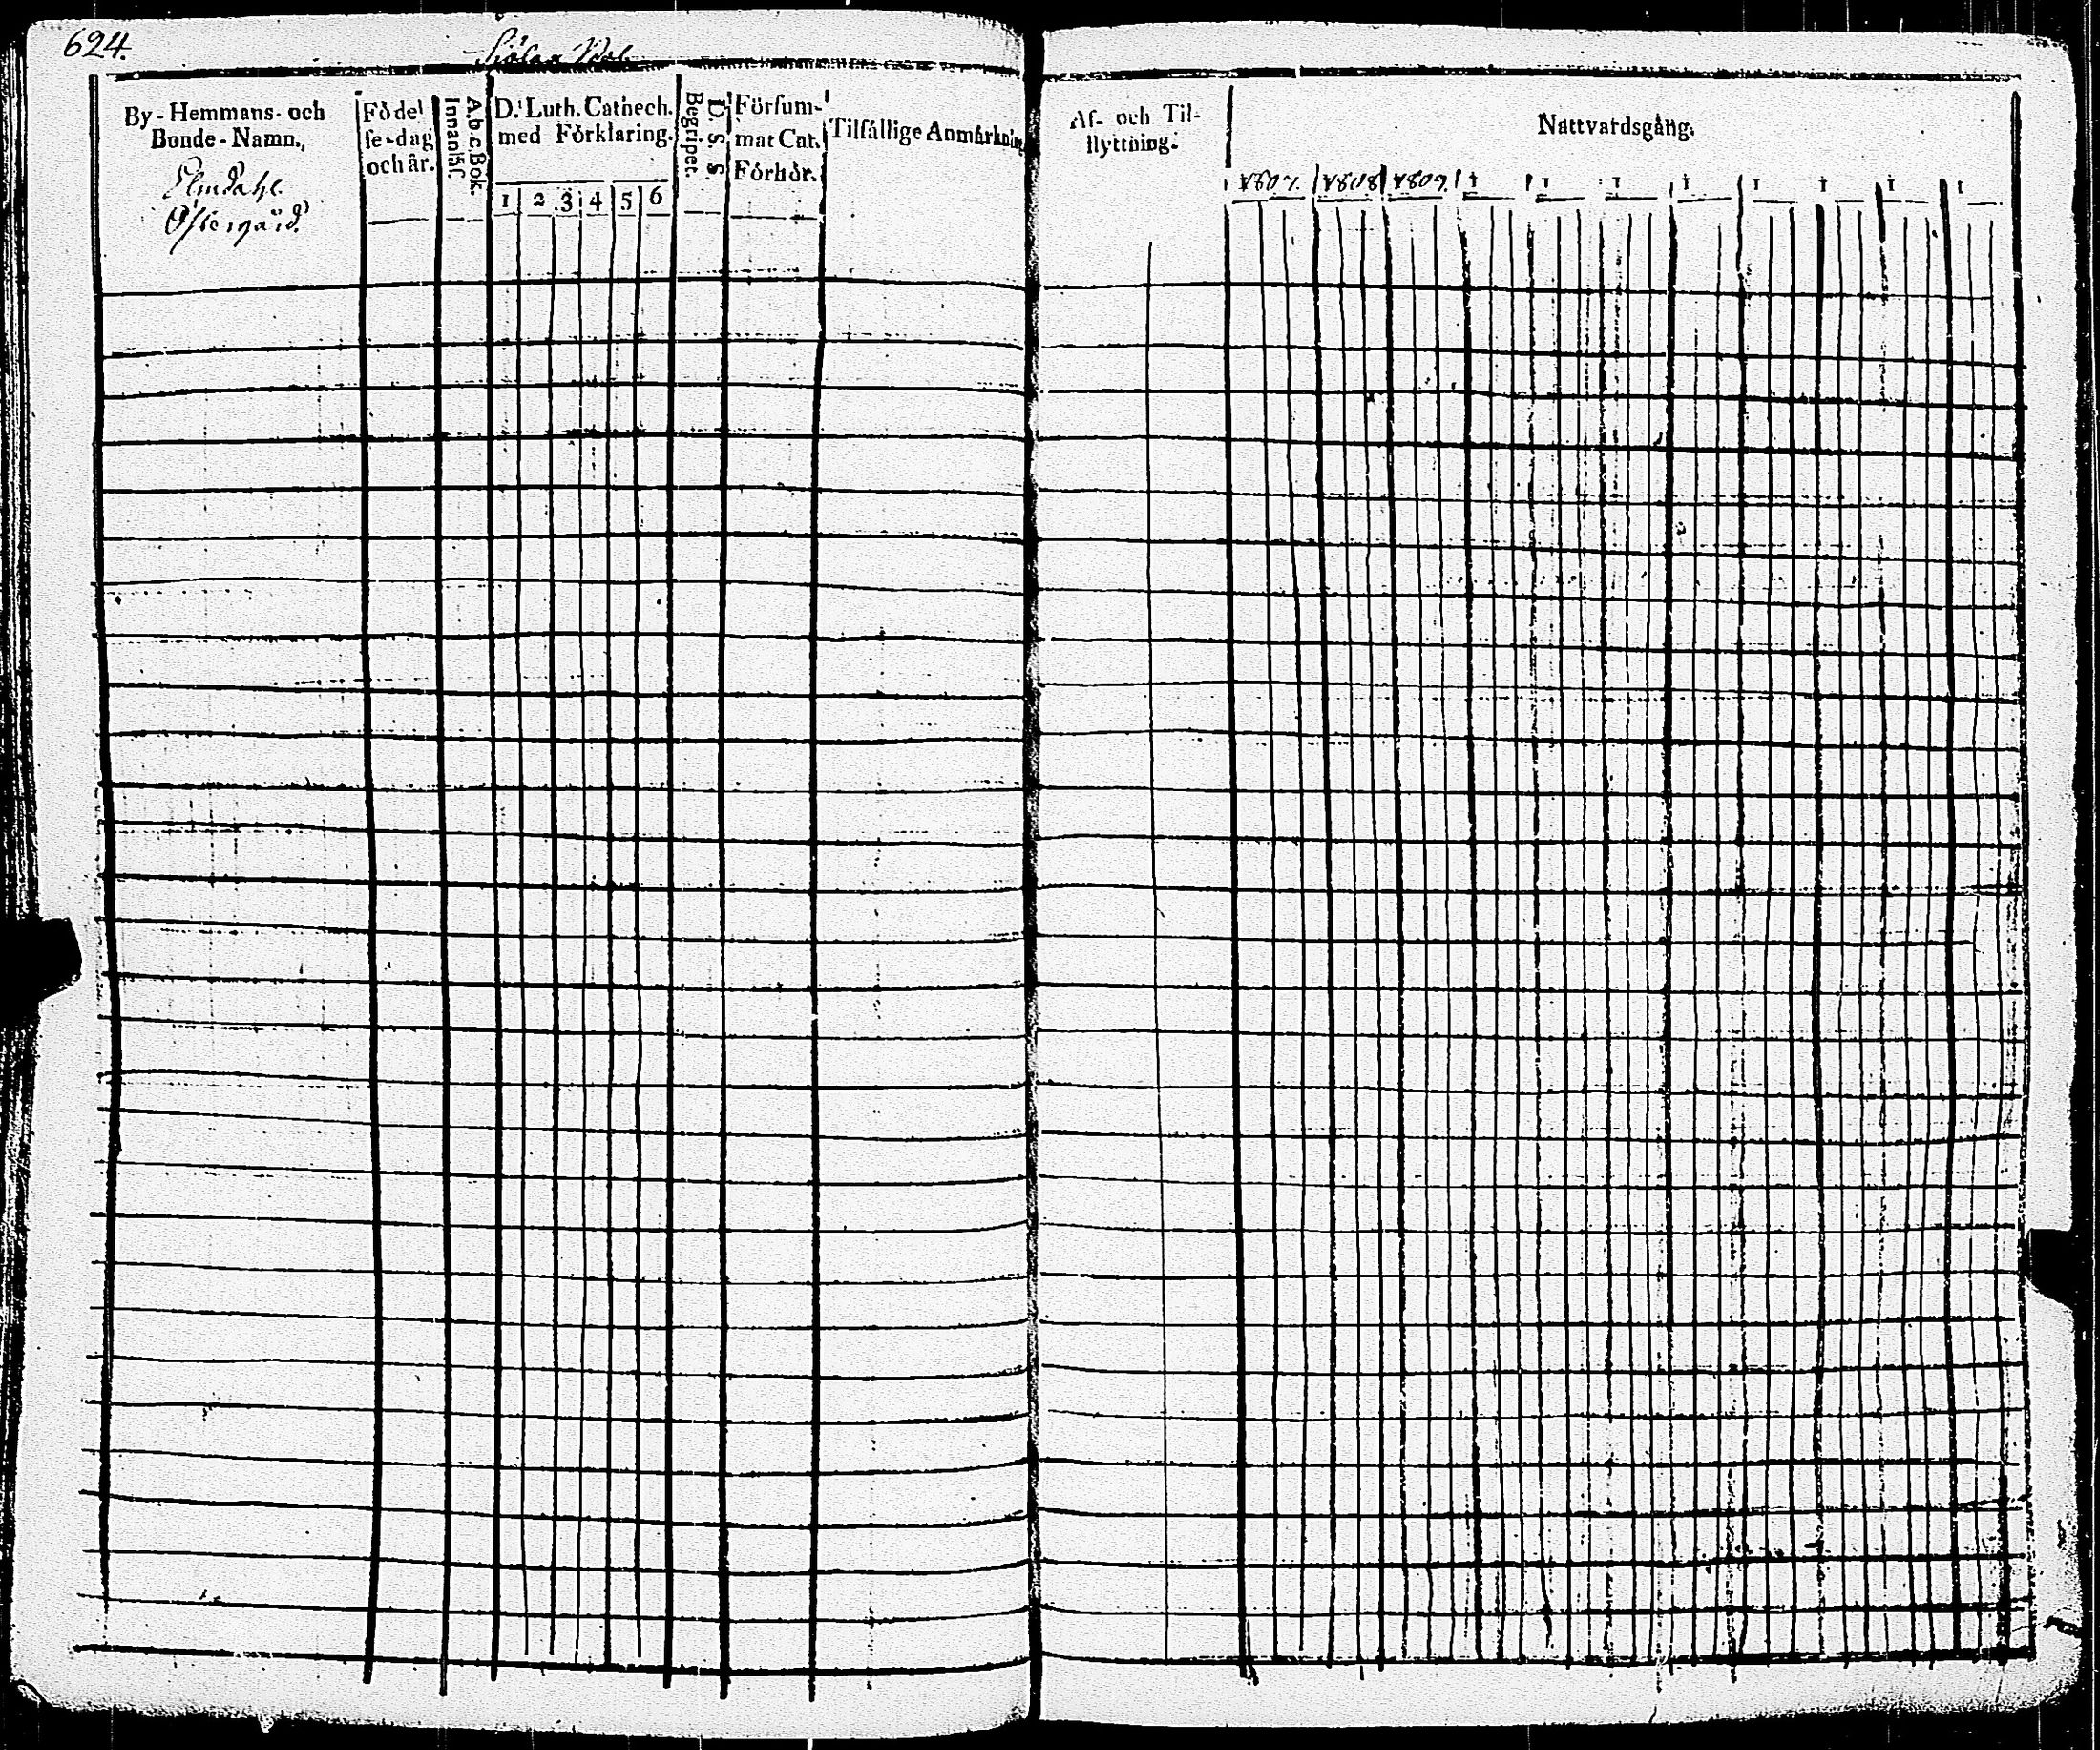 624.
By-Hemmans- och
Bonde-Namn.,
Elmdahl.
Östergård.
Födel
se-dag
och år.
A.b.c.Bok.
Innanläs.
D.r Luth. Cathech.
med Förklaring.
1 2 3 4 5 6
D. S. S.
Begriper.
Försum-
mat Cat.
Förhör.
Tilfällige Anmärknin
Af- och Til-
flyttning.
Nattvardsgång.
1807. 1808 1809. 1 1 1 1 1 1 1 1